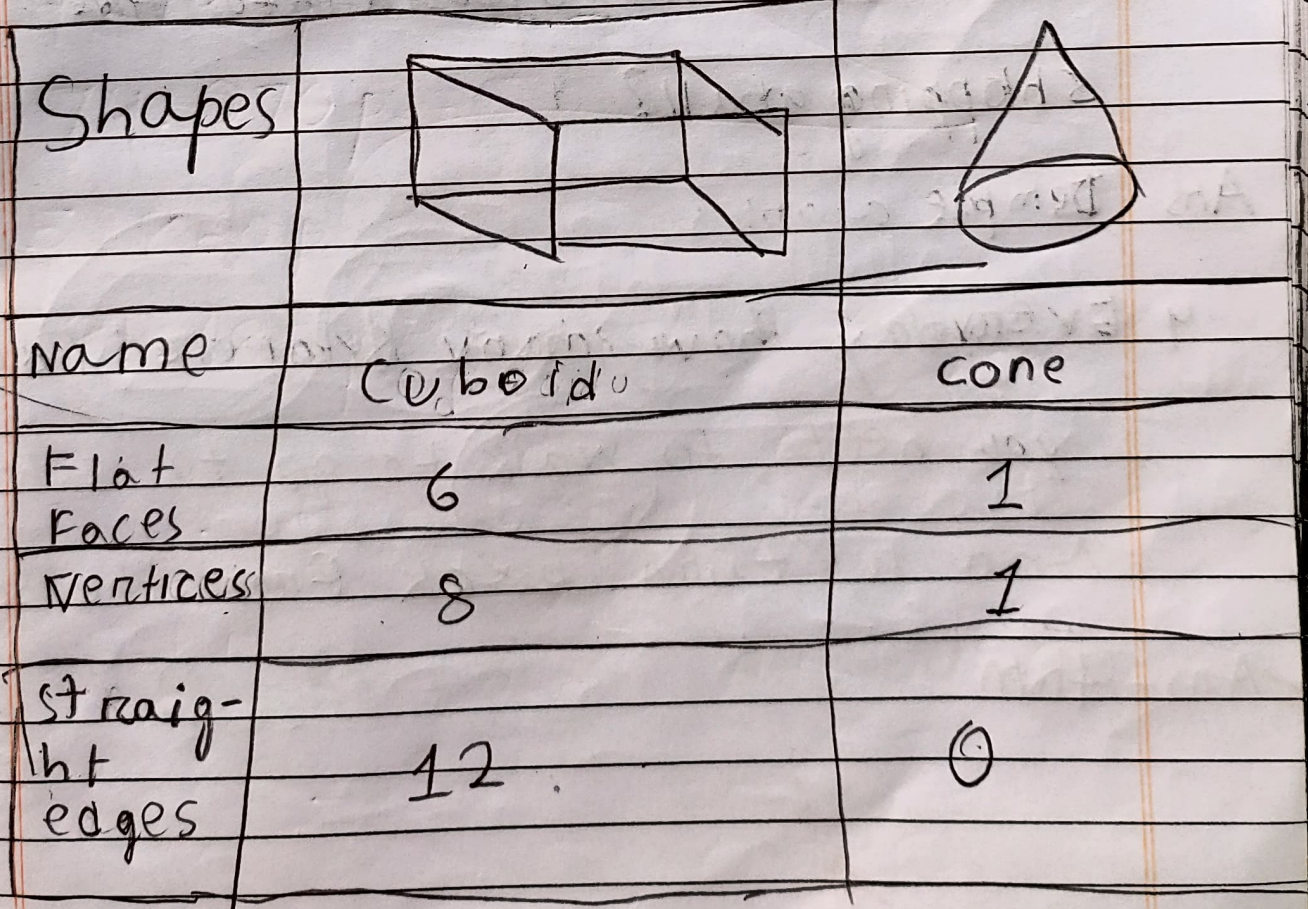 Shapes
Name Cuboid cone
Flat
Faces 6 1
Vertices 8 1
straig-
ht
edges 12 0